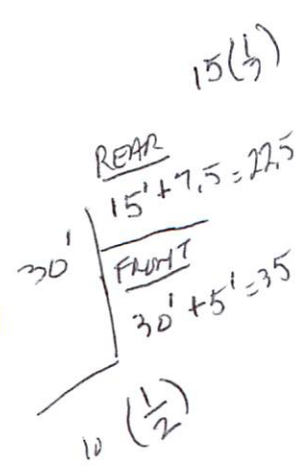 15(1/2)
REAR
15'+7.5=22.5
30'
FRONT
30'+5'=35
10 (1/2)